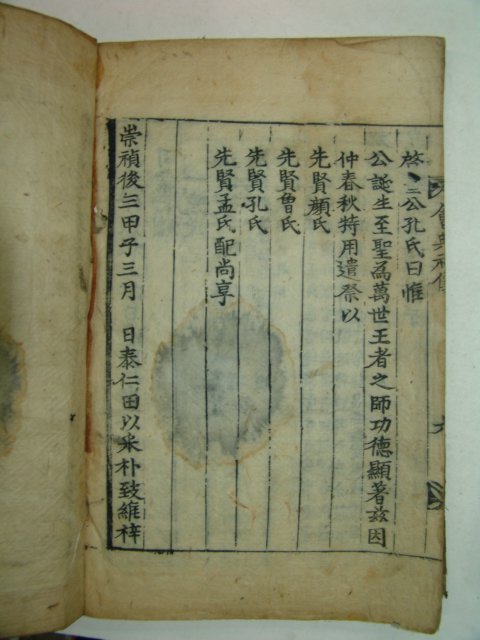 啓三公孔氏曰惟
公誕生至聖為萬世王者之師功德顯著茲因
仲春秋特用遣祭以
先賢顔氏
先賢魯氏
先賢孔氏
先賢孟氏配尚享
崇禎後三甲子三月　日泰仁田以采朴致維梓